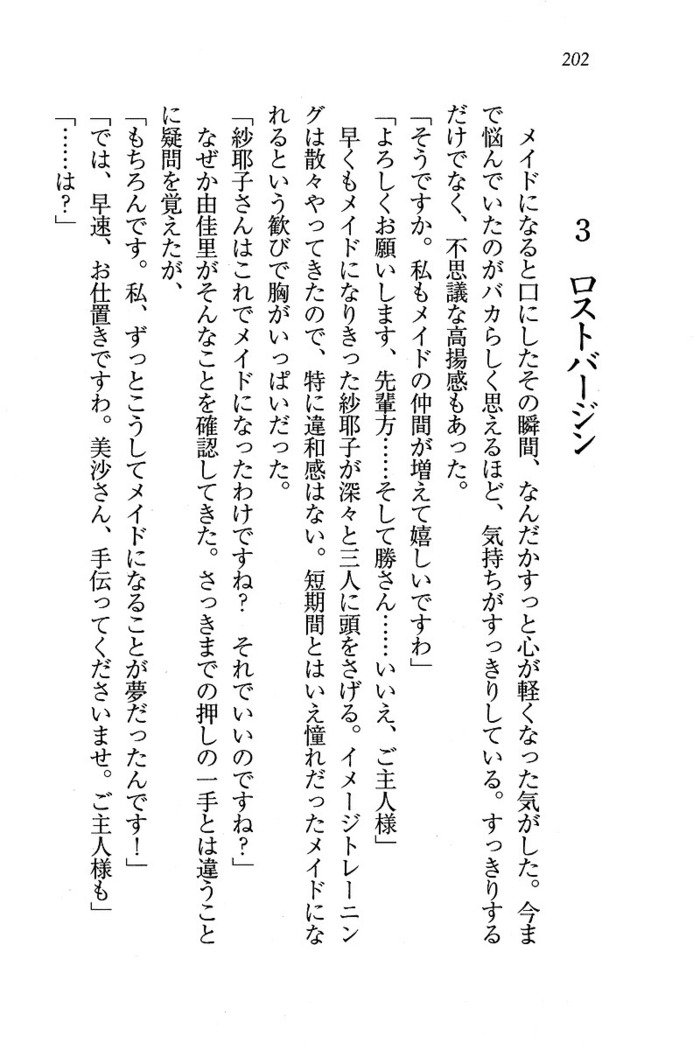 202
3　ロストバージン
メイドになると口にしたその瞬間、なんだかすっと心が軽くなった気がした。今ま
で悩んでいたのがバカらしく思えるほど、気持ちがすっきりしている。すっきりする
だけでなく、不思議な高揚感もあった。
「そうですか。私もメイドの仲間が増えて嬉しいですわ」
「よろしくお願いします、先輩方……そして勝さん……いいえ、ご主人様」
早くもメイドになりきった紗耶子が深々と三人に頭をさげる。イメージトレーニン
グは散々やってきたので、特に違和感はない。短期間とはいえ憧れだったメイドにな
れるという歓びで胸がいっぱいだった。
「紗耶子さんはこれでメイドになったわけですね？　それでいいのですね？」
なぜか由佳里がそんなことを確認してきた。さっきまでの押しの一手とは違うこと
に疑問を覚えたが、
「もちろんです。私、ずっとこうしてメイドになることが夢だったんです！」
「では、早速、お仕置きですわ。美沙さん、手伝ってくださいませ。ご主人様も」
「……は？」